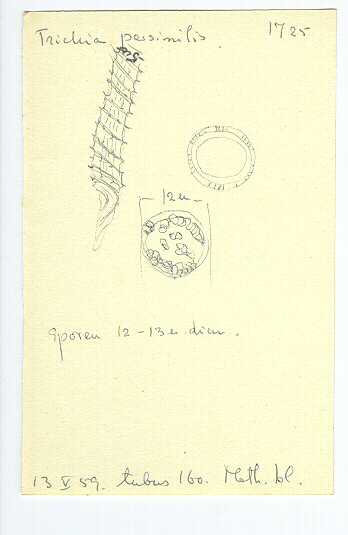 Trichia persimilis. 1725
12 µ
Sporen 12-13 µ diam.
13 V 59. tubus 160. Meth. bl.